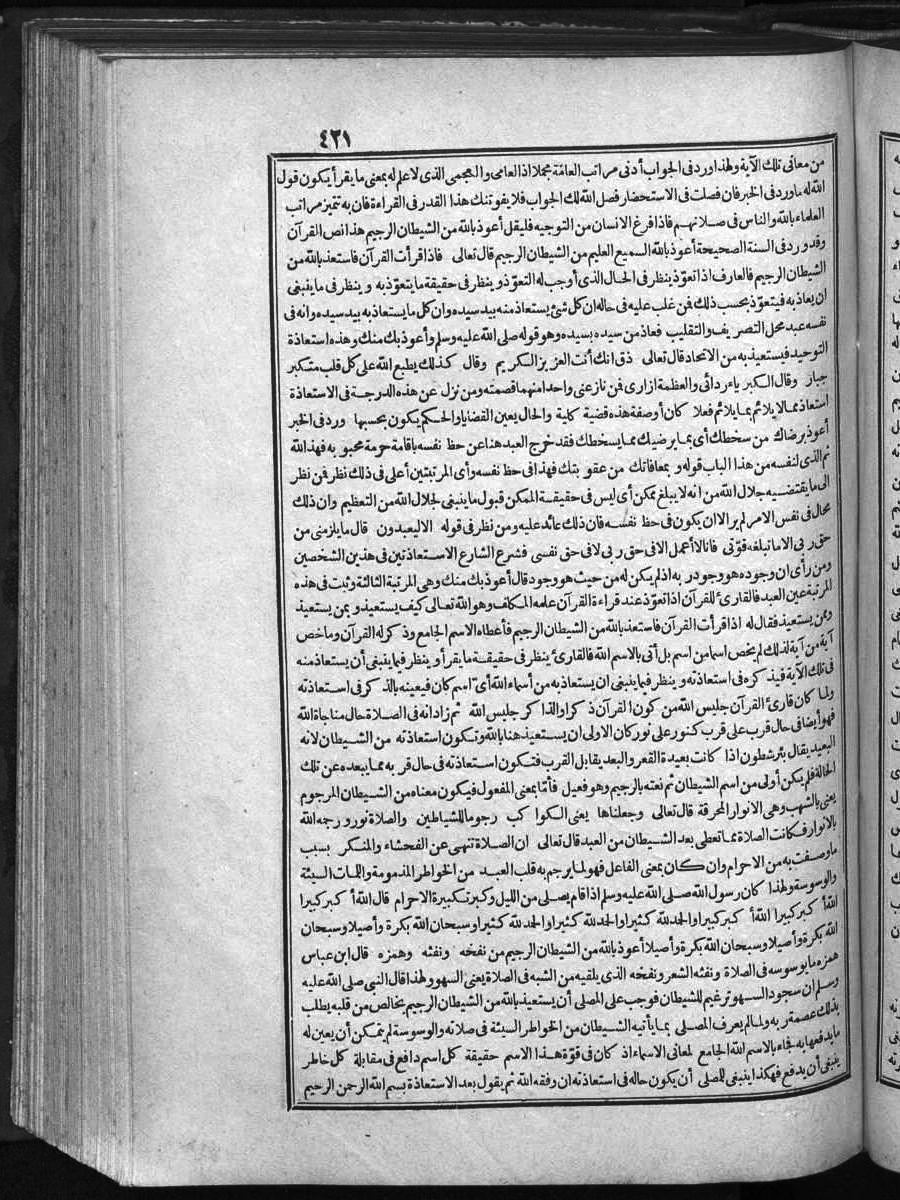 ٤٢١
من معانى تلك الآية ولهذا ورد فى الجواب أدنى مراتب العامّة مجملا اذ العامى والعجمى الذى لا علم له بمعنى ما يقرأ يكون قول
الله له ما ورد فى الخبر فان فصلت فى الاستحضار فصل الله لك الجواب فلا يفوتنك هذا القدر فى القراءة فان به تتميز مراتب
العلماء بالله والناس فى صلاتهم فاذا فرغ الانسان من التوجيه فليقل أعوذ بالله من الشيطان الرجيم هذا نص القرآن
وقد ورد فى السنة الصحيحة أعوذ بالله السميع العليم من الشيطان الرجيم قال تعالى فاذا قرأت القرآن فاستعذ بالله من
الشيطان الرجيم فالعارف اذا تعوّذ ينظر فى الحال الذى أوجب له التعوّذ وينظر فى حقيقة ما يتعوّذ به وينظر فى ما ينبغى
ان يعاذ به فيتعوّذ بحسب ذلك فمن غلب عليه فى حاله ان كل شئ يستعاذ منه بيد سيده وان كل ما يستعاذ به بيد سيده وانه فى
نفسه عبد محل التصريف والتقليب فعاذ من سيده بسيده وهو قوله صلى الله عليه وسلم وأعوذ بك منك وهذه استعاذة
التوحيد فيستعيذ به من الاتحاد قال تعالى ذق انك أنت العزيز الكريم وقال كذلك يطبع الله على كل قلب متكبر
جبار وقال الكبرياء ردائى والعظمة ازارى فمن نازعنى واحدا منهما قصمته ومن نزل عن هذه الدرجة فى الاستعاذة
استعاذ مما لا يلائم بما يلائم فعلا كان أو صفة هذه قضية كلية والحال يعين القضايا والحكم يكون بحسبها ورد فى الخبر
أعوذ برضاك من سخطك أى بما يرضيك مما يسخطك فقد خرج العبد هنا عن حظ نفسه باقامة حرمة محبوبه فهذا لله
ثم الذى لنفسه من هذا الباب قوله و بمعافاتك من عقوبتك فهذا فى حظ نفسه وأى المرتبتين أعلى فى ذلك نظر فمن نظر
الى ما يقتضيه جلال الله من انه لا يبلغ ممكن أى ليس فى حقيقة الممكن قبول ما ينبغى لجلال الله من التعظيم وان ذلك
محال فى نفس الامر لم ير الا ان يكون فى حظ نفسه فان ذلك عائد عليه ومن نظر فى قوله الا ليعبدون قال ما يلزمنى من
حق ربى الا ما تبلغه قوّتى فانا لا أعمل الا فى حق ربى لا فى حق نفسى فشرع الشارع الاستعاذتين فى هذين الشخصين
ومن رأى ان وجوده هو وجود ربه اذ لم يكن له من حيث هو وجود قال أعوذ بك منك وهى المرتبة الثالثة وثبت فى هذه
المرتبة عين العبد فالقارئ للقرآن اذا تعوّذ عند قراءة القرآن علمه المكلف وهو الله تعالى كيف يستعيذ وبمن يستعيذ
وممن يستعيذ فقال له اذا قرأت القرآن فاستعذ بالله من الشيطان الرجيم فأعطاه الاسم الجامع وذكر له القرآن وما خص
آية من آية لذلك لم يخص اسما من اسم بل أتى بالاسم الله فالقارئ ينظر فى حقيقة ما يقرأ وينظر فيما ينبغى أن يستعاذ منه
فى تلك الآية فيذكره فى استعاذته وينظر فيما ينبغى ان يستعاذ به من أسماء الله أىّ اسم كان فيعينه بالذكر فى استعاذته
ولما كان قارئ القرآن جليس الله من كون القرآن ذكرا والذاكر جليس الله ثم زاد انه فى الصلاة حال مناجاة الله
فهو أيضا فى حال قرب على قرب كنور على نور كان الاولى ان يستعيذ هنا بالله وتكون استعاذته من الشيطان لانه
البعيد يقال بئر شطون اذا كانت بعيدة القعر والبعد يقابل القرب فتكون استعاذته فى حال قربه مما يبعده عن تلك
الحالة فلم يكن أولى من اسم الشيطان ثم نعته بالرجيم وهو فعيل فأمّا بمعنى المفعول فيكون معناه من الشيطان المرجوم
يعنى بالشهب وهى الانوار المحرقة قال تعالى وجعلناها يعنى الكواكب رجوما للشياطين والصلاة نور ورجمه الله
بالانوار فكانت الصلاة مما تعطى بعد الشيطان من العبد قال تعالى ان الصلاة تنهى عن الفحشاء والمنكر بسبب
ما وصفت به من الاحرام وان كان بمعنى الفاعل فهو لما يرجم به قلب العبد من الخواطر المذمومة واللمات السيئة
والوسوسة ولهذا كان رسول الله صلى الله عليه وسلم اذا قام يصلى من الليل وكبر تكبيرة الاحرام قال الله أكبر كبيرا
الله أكبر كبيرا الله أكبر كبيرا والحمد لله كثيرا والحمد لله كثيرا والحمد لله كثيرا وسبحان الله بكرة وأصيلا وسبحان
الله بكرة وأصيلا وسبحان الله بكرة وأصيلا أعوذ بالله من الشيطان الرجيم من نفخه ونفثه وهمزه قال ابن عباس
همزه ما يوسوسه فى الصلاة ونفثه الشعر ونفخه الذى يلقيه من الشبه فى الصلاة يعنى السهو ولهذا قال النبى صلى الله عليه
وسلم ان سجود السهو ترغيم للشيطان فوجب على المصلى أن يستعيذ بالله من الشيطان الرجيم بخالص من قلبه يطلب
بذلك عصمة ربه ولما لم يعرف المصلى بما يأتيه الشيطان من الخواطر السيئة فى صلاته والوسوسة لم يتمكن أن يعين له
ما يدفعها به فجاء بالاسم الله الجامع لمعانى الاسماء اذ كان فى قوّة هذا الاسم حقيقة كل اسم دافع فى مقابلة كل خاطر
ينبغى أن يدفع فهكذا ينبغى للمصلى أن يكون حاله فى استعاذته ان وفقه الله ثم يقول بعد الاستعاذة بسم الله الرحمن الرحيم